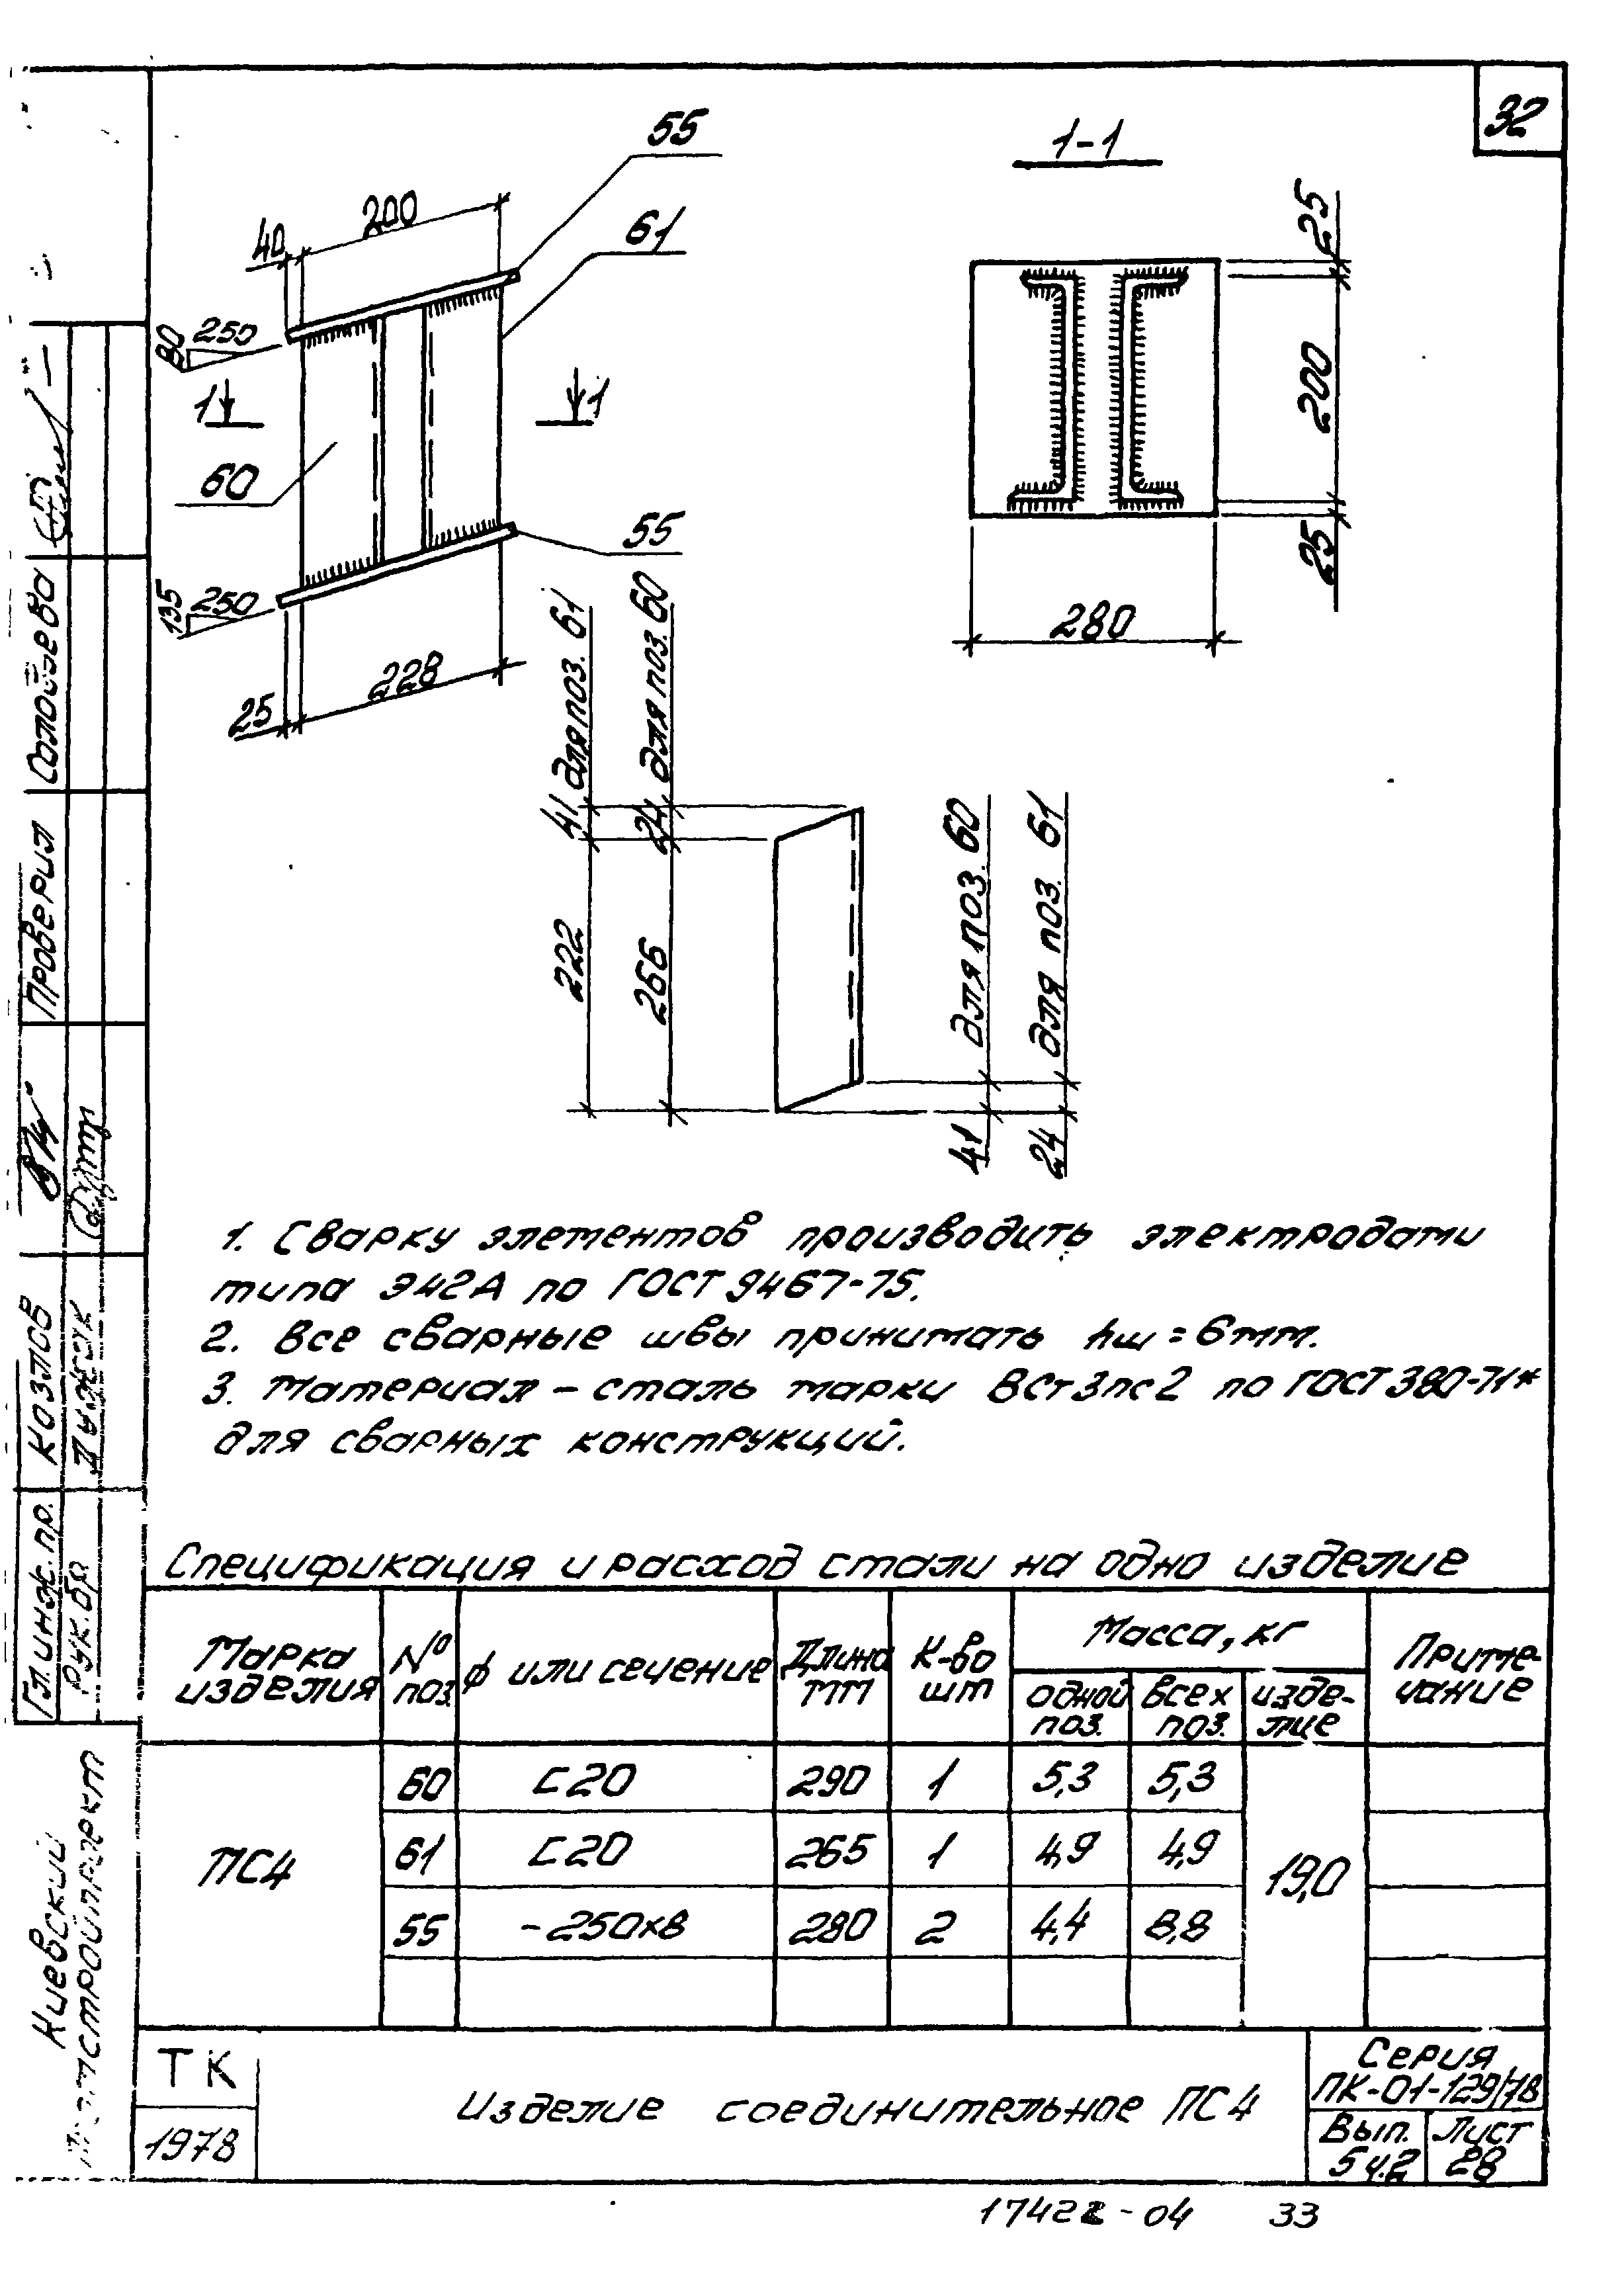 32
55
61
40
200
80
250
1
1
60
55
135
250
25
228
1-1
25
200
25
280
41 для поз. 61
24 для поз. 60
222
266
для поз. 60
для поз. 61
41
24
1. Сварку элементов производить электродами
типа Э42А по ГОСТ 9467-75.
2. Все сварные швы принимать hш = 6мм.
3. Материал – сталь марки ВСт3пс2 по ГОСТ 380-71*
для сварных конструкций.
Спецификация и расход стали на одно изделие
Марка изделия | № поз. | ф или сечение | Длина мм | К-во шт | Масса, кг | Примечание
одной поз. | всех поз. | изде-лие
ПС4
60 | С20 | 290 | 1 | 5,3 | 5,3
61 | С20 | 265 | 1 | 4,9 | 4,9 | 19,0
55 | -250х8 | 280 | 2 | 4,4 | 8,8
ТК
1978
Изделие соединительное ПС4
Серия
ПК-01-129/78
Вып.
5 ч.2
Лист
28
17422-04
33
Гл. инж. пр.
Козлов
Проверил
Соловьева
Рук. бр.
Дужак
Киевский
Промстройпроект